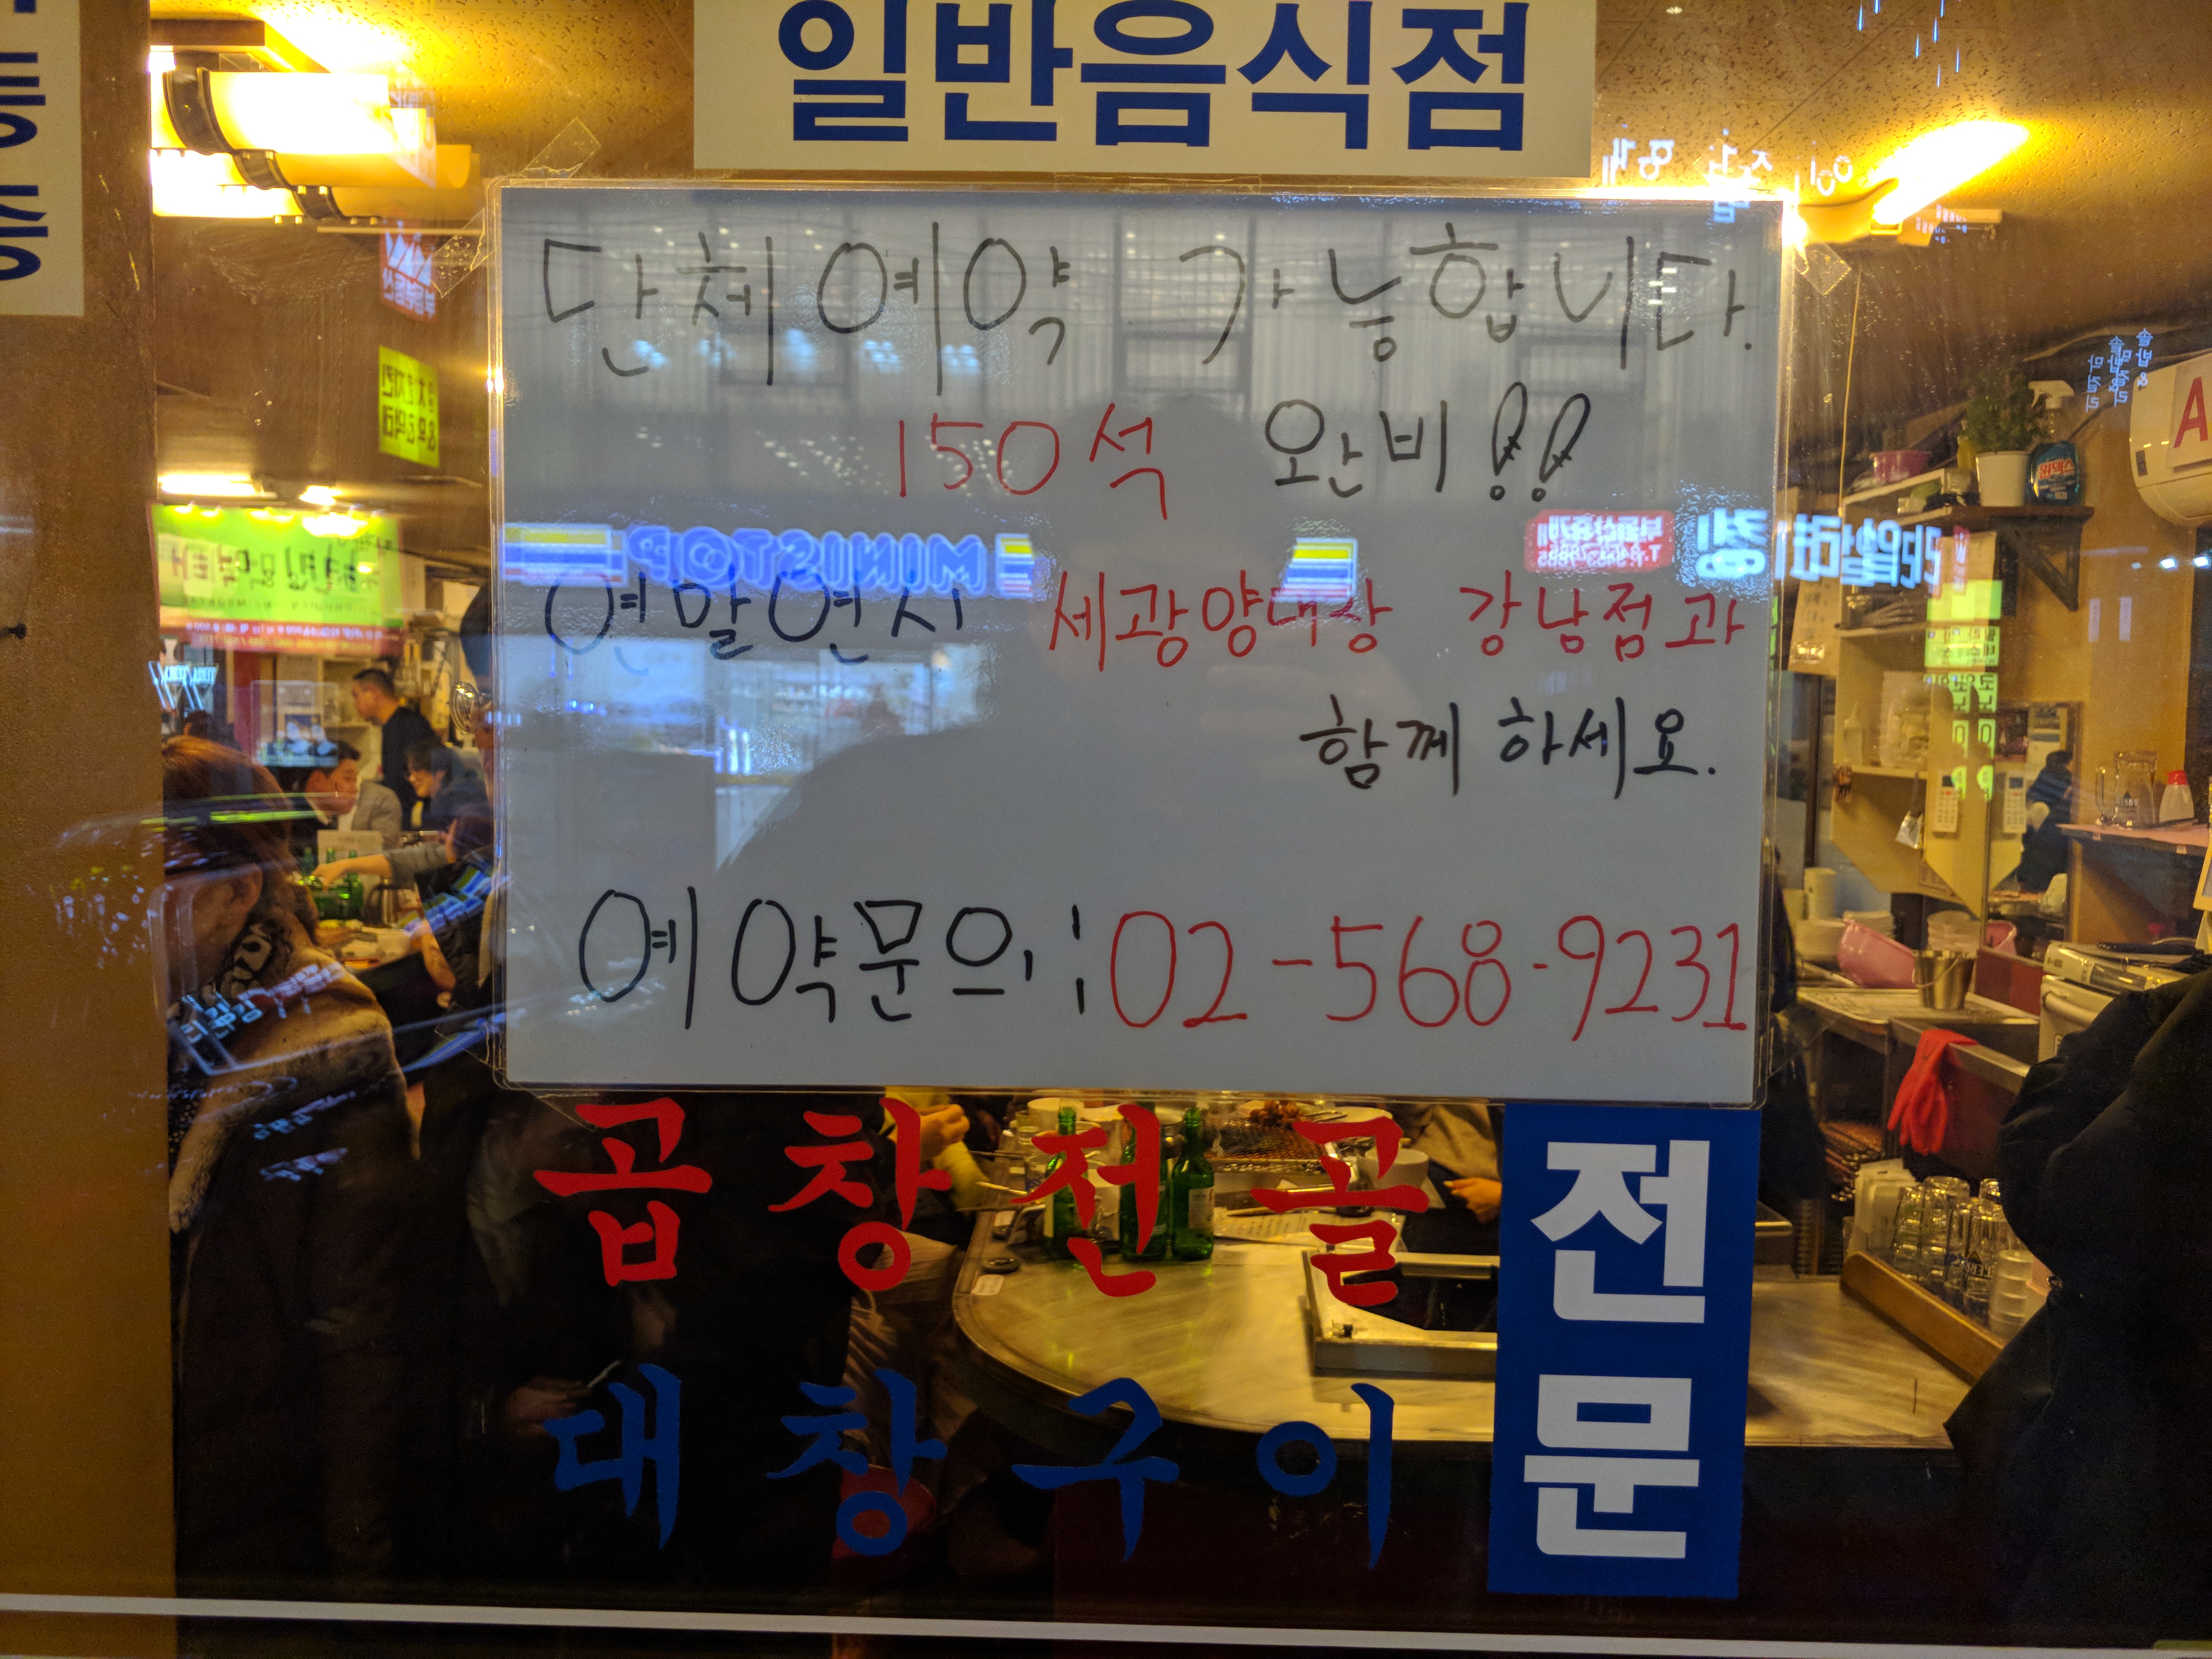 일반음식점
단체예약 가능합니다.
150석 완비!!
연말연시 세광양대창 강남점과
함께 하세요.
예약문의:02-568-9231
곱창전골
대창구이
전문
MINISTOP
A